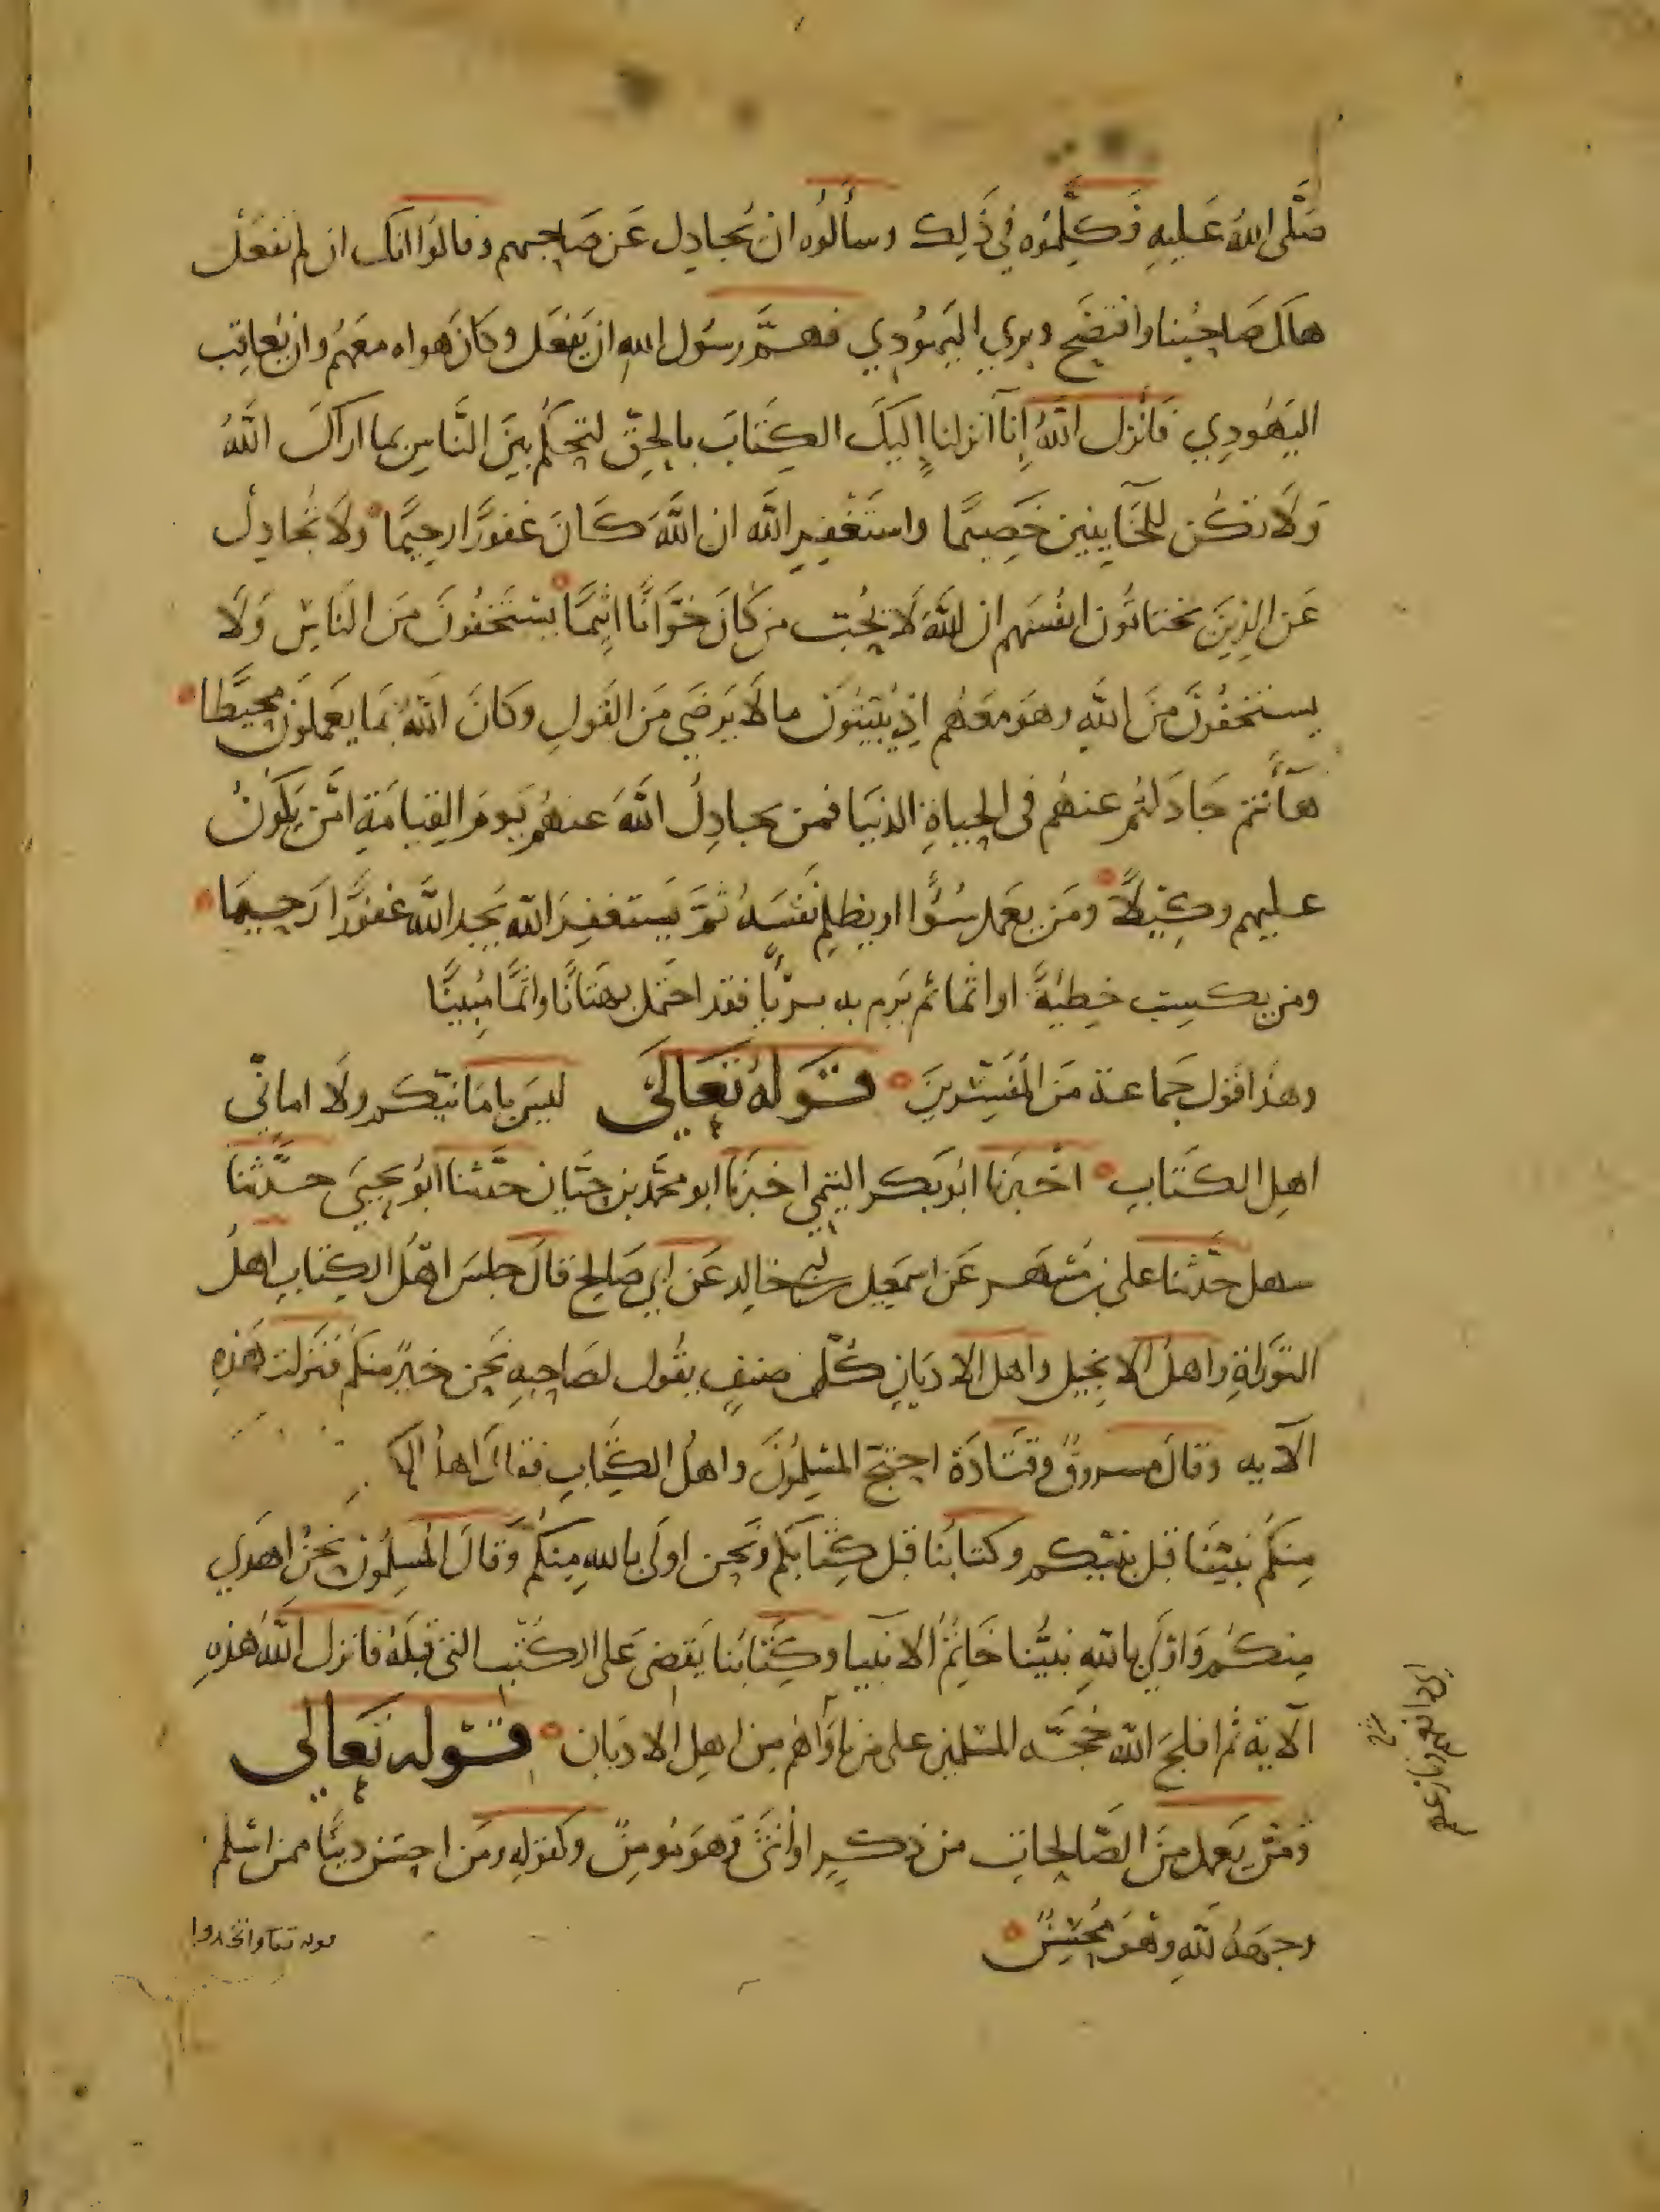 صَلَّى اللهُ عَليهِ فَكَلَّمُوه فِي ذَلِك وسألُوه ان يُجادِل عَن صَاحِبهم وقالوا انك ان لم تفعَل
هلك صَاحِبُنا وافتضَح وبري اليَهُودِي فهَمَّ رسُول الله ان يَفعَل وكانَ هواه معَهُم وان يُعاقِب
اليَهُودِي فأنزل اللهُ إِنا أنزلنا إليكَ الكِتَابَ بالحِقّ لتحكُم بَينَ النَّاسِ بما اراكَ اللَّهُ
وَلَا تكُن لِلخَايِنين خَصِيمًا واستَغْفِرِ الله ان اللَّهَ كَانَ غفورًا رحِيمًا ولَا تُجادِل
عَن الذِينَ يختانُون انفُسَهم ان اللَّهَ لَا يُحِبّ من كَانَ خَوَّانًا اثِيمًا يسْتَخفُونَ مِنَ النَاسِ وَلَا
يستخفُونَ مِنَ اللهِ وهوَ معَهُم اذ يُبَيّتُونَ ما لَا يَرضَي مِنَ القَولِ وكَانَ اللهُ بمَا يعَملونَ محِيطًا
هَاَنتم جَادَلتُم عنهُم في الحياةِ الدنيَا فمن يجادِلُ اللَّهَ عنهُم يَومَ القِيامَةِ امَّن يَكُونُ
عليهم وكِيلًا ومَن يعمَل سُوًا او يظلِم نَفسَهُ ثمَّ يَستغفِرِ الله يَجِدِ اللَّهَ غفورًا رَحِيمًا
ومن يكسِب خطِيَةً او اثمًا ثم يَرمِ به بريًا فقد احتَمل بهتَانًا واثمًا مُبِينًا
وهذا قول جَماعة مَن المُفَسِّرينَ قَوله تَعَالَى ليسَ بامَانيّكم ولَا امانيّ
اهلِ الكَتَابِ اخْبَرنا ابُو بَكر التيمي اخبَرنا ابو محمَّد بن حَيَّان حدّثنا ابُو يحيَى حدَّثنا
سهل حدَّثنا علي بن مُسْهَر عَن اسمعِيل بن ابي خالِد عَن ابي صَالِح قالَ جلسَ اهْلُ الكِتابِ اهلُ
التَورَاةِ واهلُ الانجِيل واهل الاديَانِ كُلّ صنفٍ يقُول لصَاحِبهِ نَحن خيرٌ منكُم فنَزلت هَذِهِ
الآيه وقالَ مسروقٌ وقَتَادَة احتجَّ المسْلِمُونَ واهلُ الكِتَابِ فقالَ اهلُ
مِنكُم نَبيّنَا قبل نبيّكم وكتابُنا قَبل كِتَابكُم ونَحن اولَى باللهِ مِنكُم وَقَالَ المُسلِمُون نَحنُ اهدَي
مِنكُم وَاولَي باللهِ نبيُّنا خَاتِمُ الانبيَا وكِتَابُنا يَقضِى عَلى الكتُبِ التي قبلَهُ فانزل اللَّهُ هَذِهِ
الآيَة ثم افلجَ الله حُجَّة المسلمين على من ناوَأهُم مِن اهِل الاديَانِ قَوله تَعَالي
وَمَن يَعمل مِنَ الصَّالِحَاتِ من ذكَرٍ او انثَى وَهوَ مُومِنٌ وكقولِهِ ومَن احسَن دينًا ممن اسْلم
وجهَهُ للهِ وَهُوَ مُحْسِنٌ
قوله تعا واتخذوا